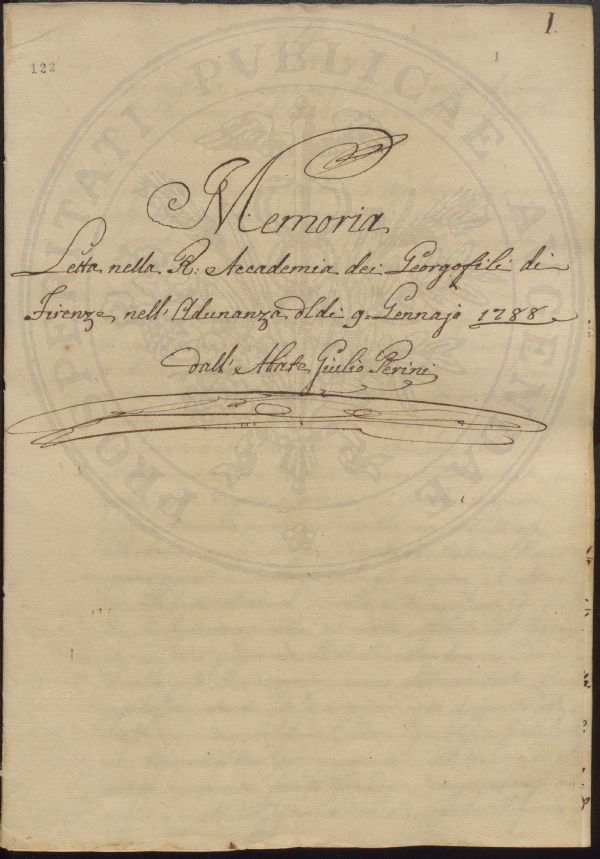 I.
123
1
PROSPERITATI PVBLICAE AVGENDAE
Memoria
Letta nella R: Accademia dei Georgofili di
Firenze nell'Adunanza del dì 9. Gennajo 1788
dall'Abate Giulio Perini